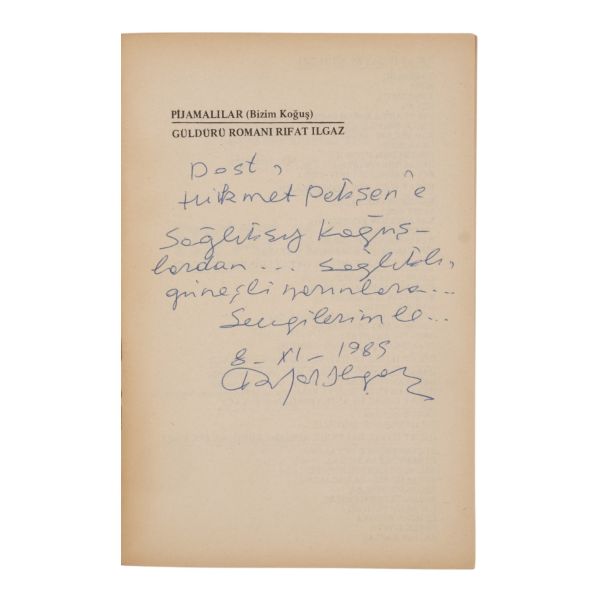 PİJAMALILAR (Bizim Koğuş)
GÜLDÜRÜ ROMANI RIFAT ILGAZ
Dost,
Hikmet Petişen'e
Sağlıksız Koğuş-
lardan... Sağlıklı,
güneşli yarınlara...
Sevgilerimle...
8-XI-1985
Rıfat Ilgaz